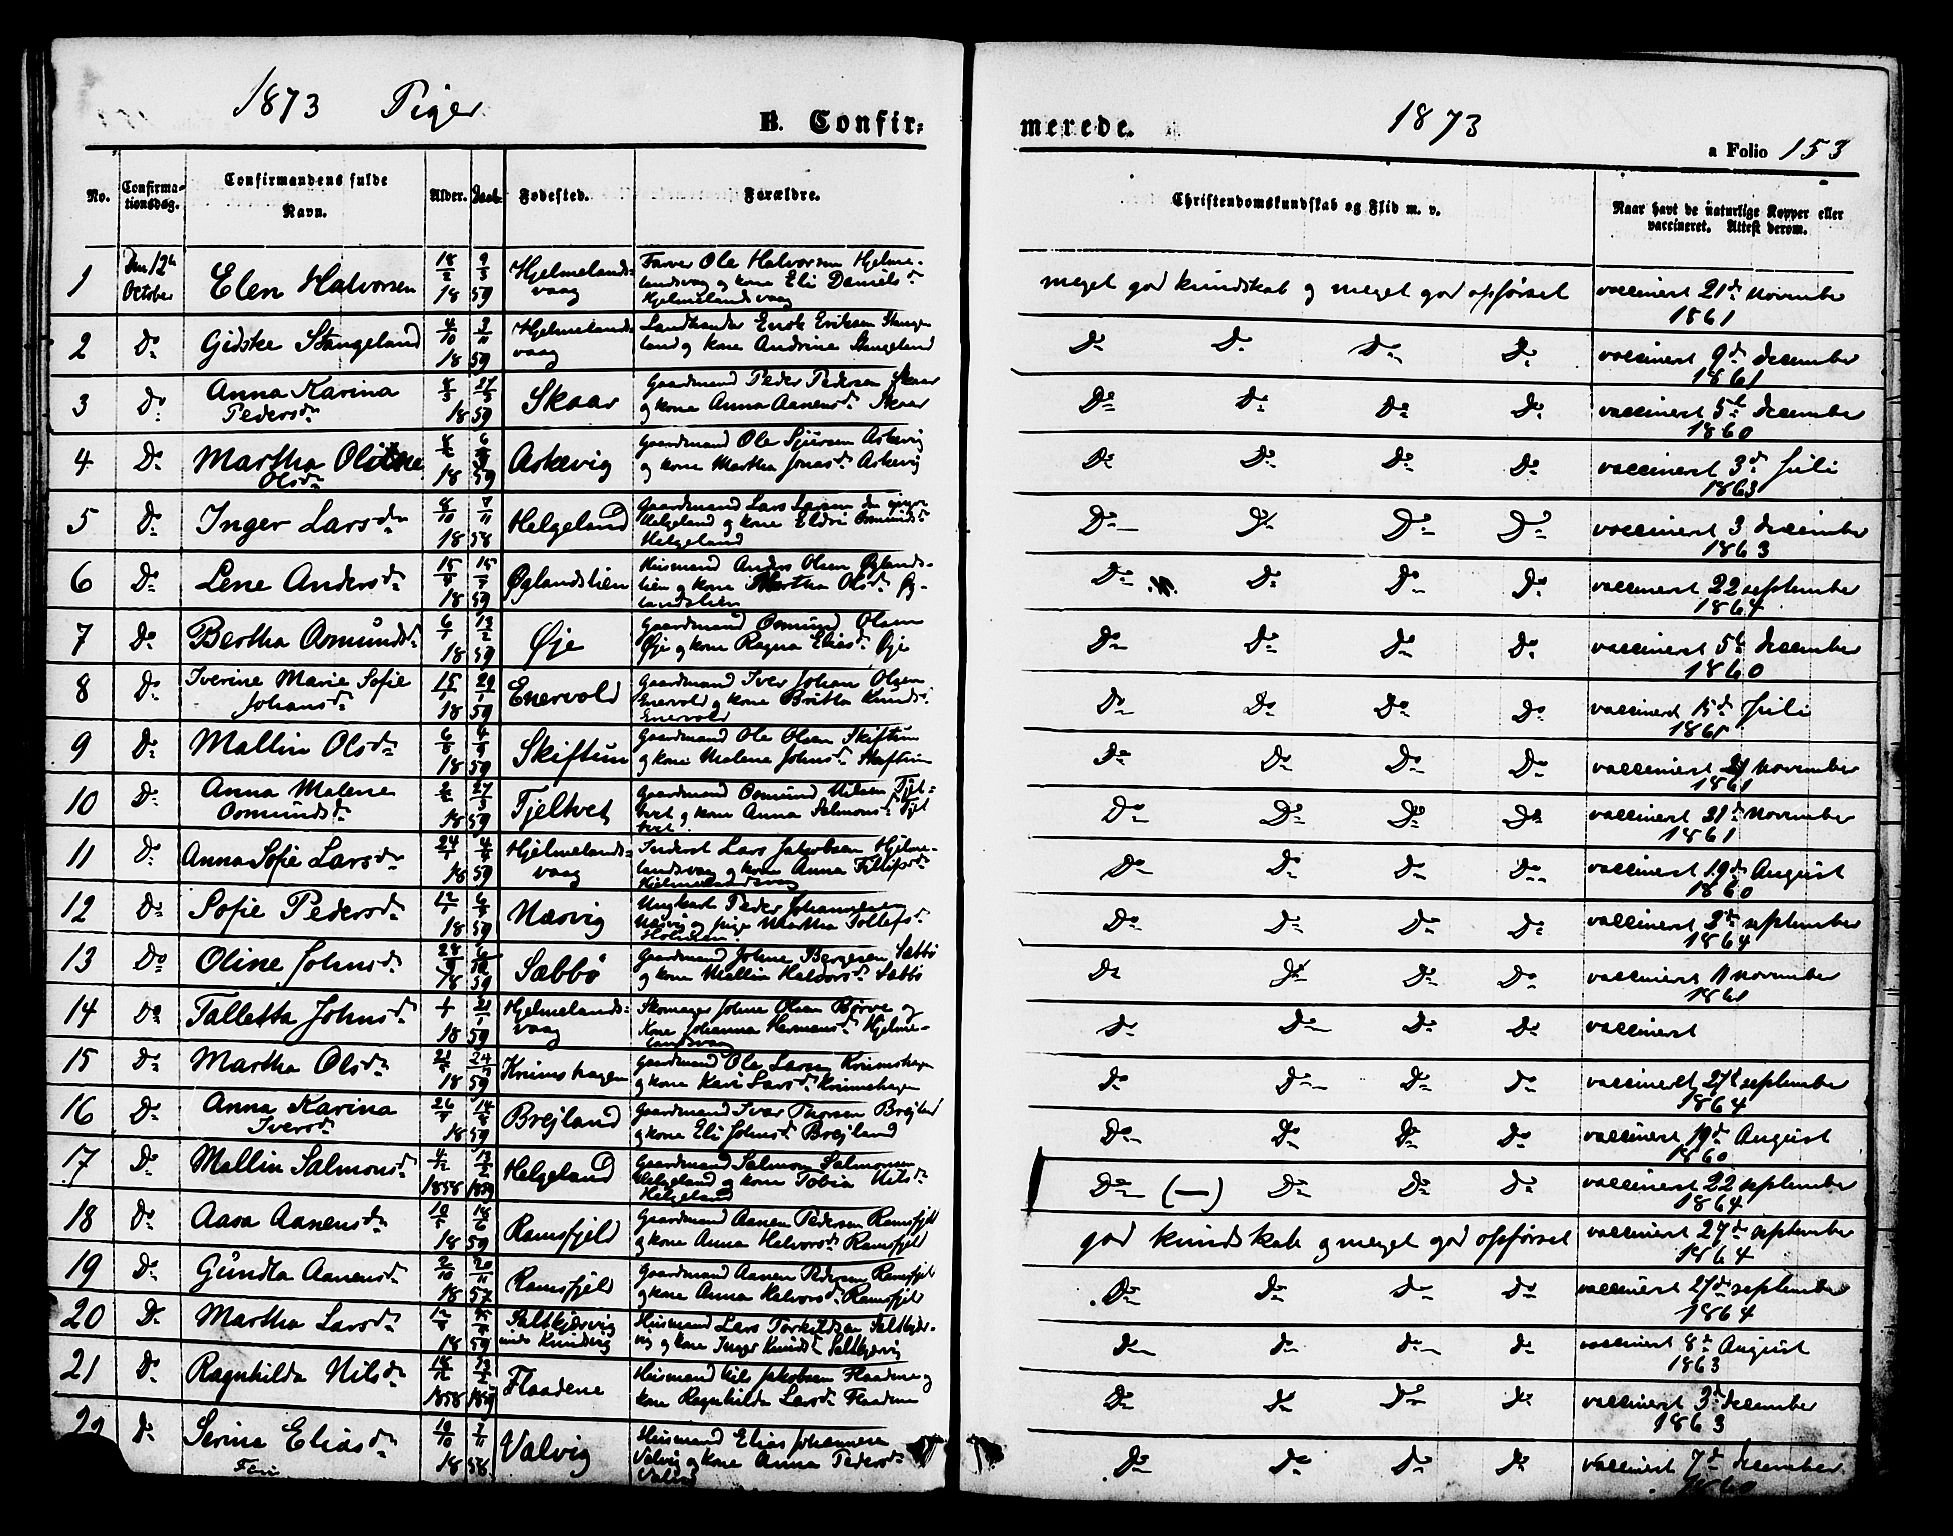 1873 Piger B. Confir-
merede. 1873
a Folio 153
No. Confirma-tionsdag. Confirmandens fulde Navn. Alder. Daab. Fødested. Forældre.
Christendomskundskab og Flid m. v. Naar havt de naturlige Kopper eller vaccineret. Attest derom.
1 Den 12te October Elen Halvorsen 18 1859 Hjelmelands-
vaag Farver Ole Halvorsen Hjelme-
landsvag og kone Eli Daniels d.
Hjelmelandsvaag
meget god kundskab og meget god opførsel vaccinert 21de November
1861
2 Do Gidske Stangeland 4/10 1859 Hjelmelands
vaag Landhandler Enok Eriksen Stange
land og kone Andrine Stangeland
Do Do Do Do vaccinert 9de december
1861
3 Do Anna Karina
Pedersdr 1859 Skaar Gaardmand Peder Pedersen Skaar
og kone Anna Aanensdr Skaar
Do Do Do Do vaccinert 5te december
1860
4 Do Martha Oline
Olsdr 1859 Askevig Gaardmand Ole Sjursen Askevig
og kone Martha Jonasdr Askevig
Do Do Do Do vaccinert 3de Juli
1863
5 Do Inger Larsdr 8/10 7/11 1858 Helgeland Gaardmand Lars Larsen den yngre
Helgeland og kone Eldri Osmundsdr
Helgeland
Do Do Do Do vaccinert 3 december
1863
6 Do Lene Andersdr 1859 Øglandslien Husmand Anders Olsen Øglands-
lien og kone Martha Olsdr Øg-
landslien
Do Do Do Do vaccineret 22 september
1864
7 Do Bertha Osmundsdr 1859 Øje Gaardmand Osmund Olsen
Øje og kone Ragna Eliasdr Øje
Do Do Do Do vaccineret 5te december
1860
8 Do Iverine Marie Sofie
Johansdr 1859 Enervold Gaardmand Iver Johan Olsen
Enervold og kone Britta Knudsdr
Enervold
Do Do Do Do vaccineret 15de Juli
1861
9 Do Mallin Olsdr 1859 Skiftun Gaardmand Ole Olsen Skiftun
og kone Malena Johnsdr Skiftun
Do Do Do Do vaccinert 21 November
1861
10 Do Anna Malene
Osmundsdr 1859 Tjeltvet Gaardmand Osmund Nilsen Tjel-
tvet og kone Anna Salmonsdr Tjel
tvet.
Do Do Do Do vaccinert 21de November
1861
11 Do Anna Sofie Larsdr 1859 Hjelmelands-
vaag Inderst Lars Jakobsen Hjelme-
landsvag og kone Anna Tollefsdr
Hjelmelandsvag
Do Do Do Do vaccinert 19de August
1860
12 Do Sofie Pedersdr 1859 Næsvig Ungkarl Peder Johannesen
Næsvig og pige Martha Tollefsdr
Do Do Do Do vaccinert september
1864
13 Do Oline Johnsdr 1859 Sæbbø Gaardmand Johne Børgesen Sæbbø
og kone Mallin Haldorsdr Sæbbø
Do Do Do Do vaccinert November
1861
14 Do Talletta Johnsdr 1859 Hjelmelands-
vaag Skomager Johne Olsen Børve og
Kone Johanna Hermansdr Hjelme-
landsvaag
Do Do Do Do vaccinert
15 Do Martha Olsdr 1859 Krumshagen Gaardmand Ole Larsen Krumshagen
og kone Kari Larsdr Krumshagen
Do Do Do Do vaccineret 27de september
1864
16 Do Anna Karina
Iversdr 1859 Brejland Gaardmand Ivar Thorsen Brejland
og kone Eli Johnsdr Brejland
Do Do Do Do vaccinert 19de August
1860
17 Do Mallin Salmonsdr 1858 1859 Helgeland Gaardmand Salmon Salmonsen
Helgeland og kone Tobia Nilsdr
Helgeland
Do (—) Do Do Do vaccinert 22 september
1864
18 Do Aasa Aanensdr 1859 Ramsfjeld Gaardmand Aanen Pedersen Ramsfjeld
og kone Anna Halvorsdr Ramsfjeld
god kundskab og meget god opførsel vaccinert 27de september
1864
19 Do Gundla Aanensdr 2/10 20/11 1857 Ramsfjeld Gaardmand Aanen Pedersen Ramsfjeld
og kone Anna Halvorsdr Ramsfjeld
Do Do Do Do vaccinert 27de september
1864
20 Do Martha Larsdr 1859 Saltkjærvig
under Knudsvig Husmand Lars Torkildsen Saltkjær-
vig og kone Inger Knudsdr Saltkjærvig
Do Do Do Do vaccinert 8de August
1863
21 Do Ragnhilda Nilsdr 1858 1859 Flaadene Husmand Nils Jakobsen Flaadene og
kone Ragnhilda Larsdr Flaadene
Do Do Do Do vaccinert 3de december
1863
22 Do Serina Eliasdr 10/10 1858 Valvig Husmand Elias Johannesen
Valvig og kone Anna Pedersdr
Valvig
Do Do Do Do vaccinert 7de december
1860